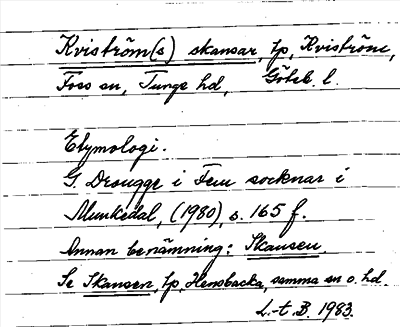 Kviström(s) skansar, tp, Kviström,
Foss sn, Tunge hd, Göteb. l.
Etymologi.
G. Drougge i Fem socknar i
Munkedal, (1980), s. 165 f.
Annan benämning: Skansen.
Se Skansen, tp, Hensbacka, samma sn o. hd.
L.-t. B. 1983.